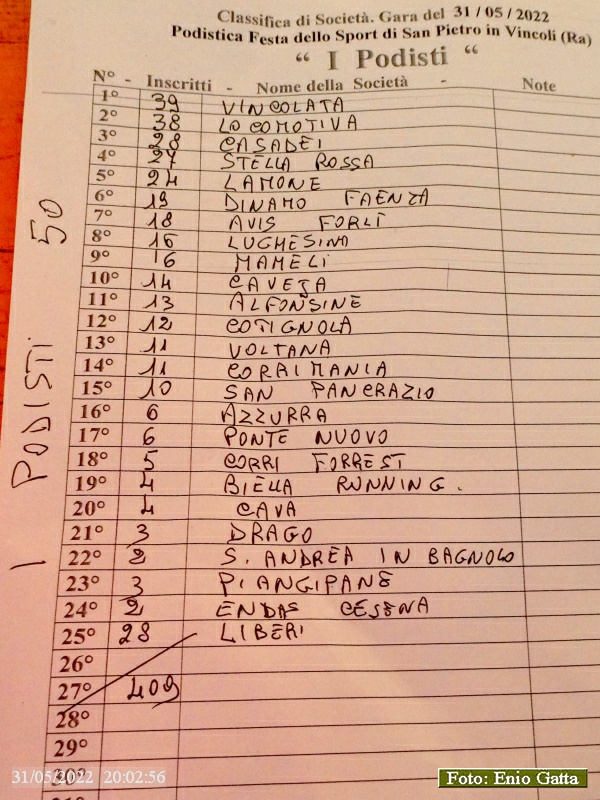 Classifica di Società. Gara del 31/05/2022
Podistica Festa dello Sport di San Pietro in Vincoli (Ra)
“ I Podisti “
N° - Inscritti - Nome della Società - Note
1° 39 VINCOLATA
2° 38 LOCOMOTIVA
3° 28 CASADEI
4° 27 STELLA ROSSA
5° 24 LAMONE
6° 19 DINAMO FAENZA
7° 18 AVIS FORLÌ
8° 16 LUGHESINA
9° 16 MAMELI
10° 14 CAVEJA
11° 13 ALFONSINE
12° 12 COTIGNOLA
13° 11 VOLTANA
14° 11 CORRIMANIA
15° 10 SAN PANCRAZIO
16° 6 AZZURRA
17° 6 PONTE NUOVO
18° 5 CORRI FORREST
19° 4 BIELLA RUNNING.
20° 4 CAVA
21° 3 DRAGO
22° 2 S. ANDREA IN BAGNOLO
23° 3 PIANGIPANE
24° 2 ENDAS CESENA
25° 28 LIBERI
26°
27° 409
28°
29°
30°
I PODISTI 50
31/05/2022 20:02:56
Foto: Enio Gatta